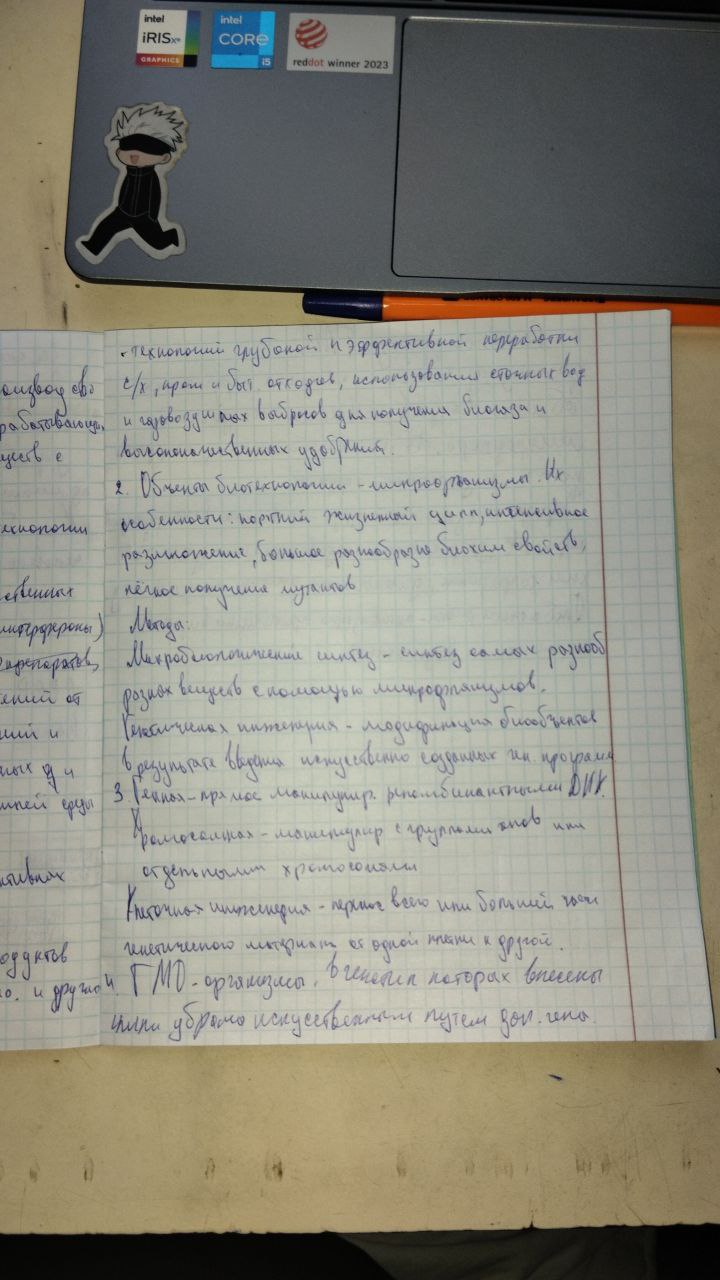 intel
iRIS xe
GRAPHICS
intel
CORE
i5
reddot winner 2023
- технологий глубокой и эффективной переработки
с/х, пром и быт. отходов, использования сточных вод
и газовоздушных выбросов для получения биогаза и
высококачественных удобрений.
2. Объекты биотехнологии - микроорганизмы. Их
особенности: короткий жизненный цикл, интенсивное
размножение, большое разнообразие биохим свойств,
лёгкое получение мутантов
Методы:
Микробиологический синтез - синтез самых разнооб
разных веществ с помощью микроорганизмов.
Генетическая инженерия - модификация биообъектов
в результате введения искусственно созданных ген. программ
3. Генная - прямое манипулир. рекомбинантными ДНК.
Хромосомная - манипулир с группами хр-ов или
отдельными хромосомами
Клеточная инженерия - перенос всего или большей части
генетического материала от одной клетки к другой.
4. ГМО - организмы, в генотип которых внесены
или убраны искусственным путем доп. гена.
оизвод
рабатывающ
ществ с
ехнологии
ственных
интерфероны)
препаратов,
ений от
ний и
ных
шней среды
ктивных
одуктов
о. и другой